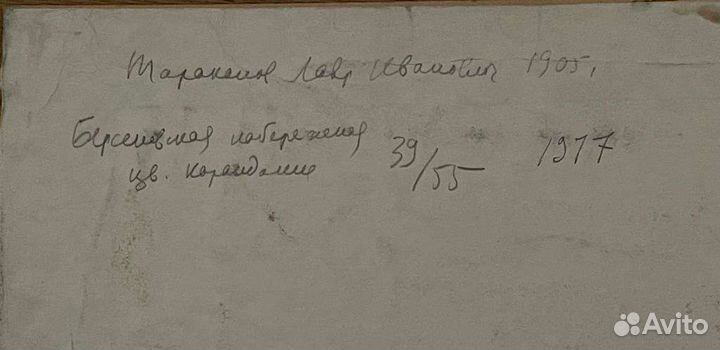 Тараканов Лавр Иванович 1905,
Берсеневская набережная 39/55 1977
цв. карандаши
Avito